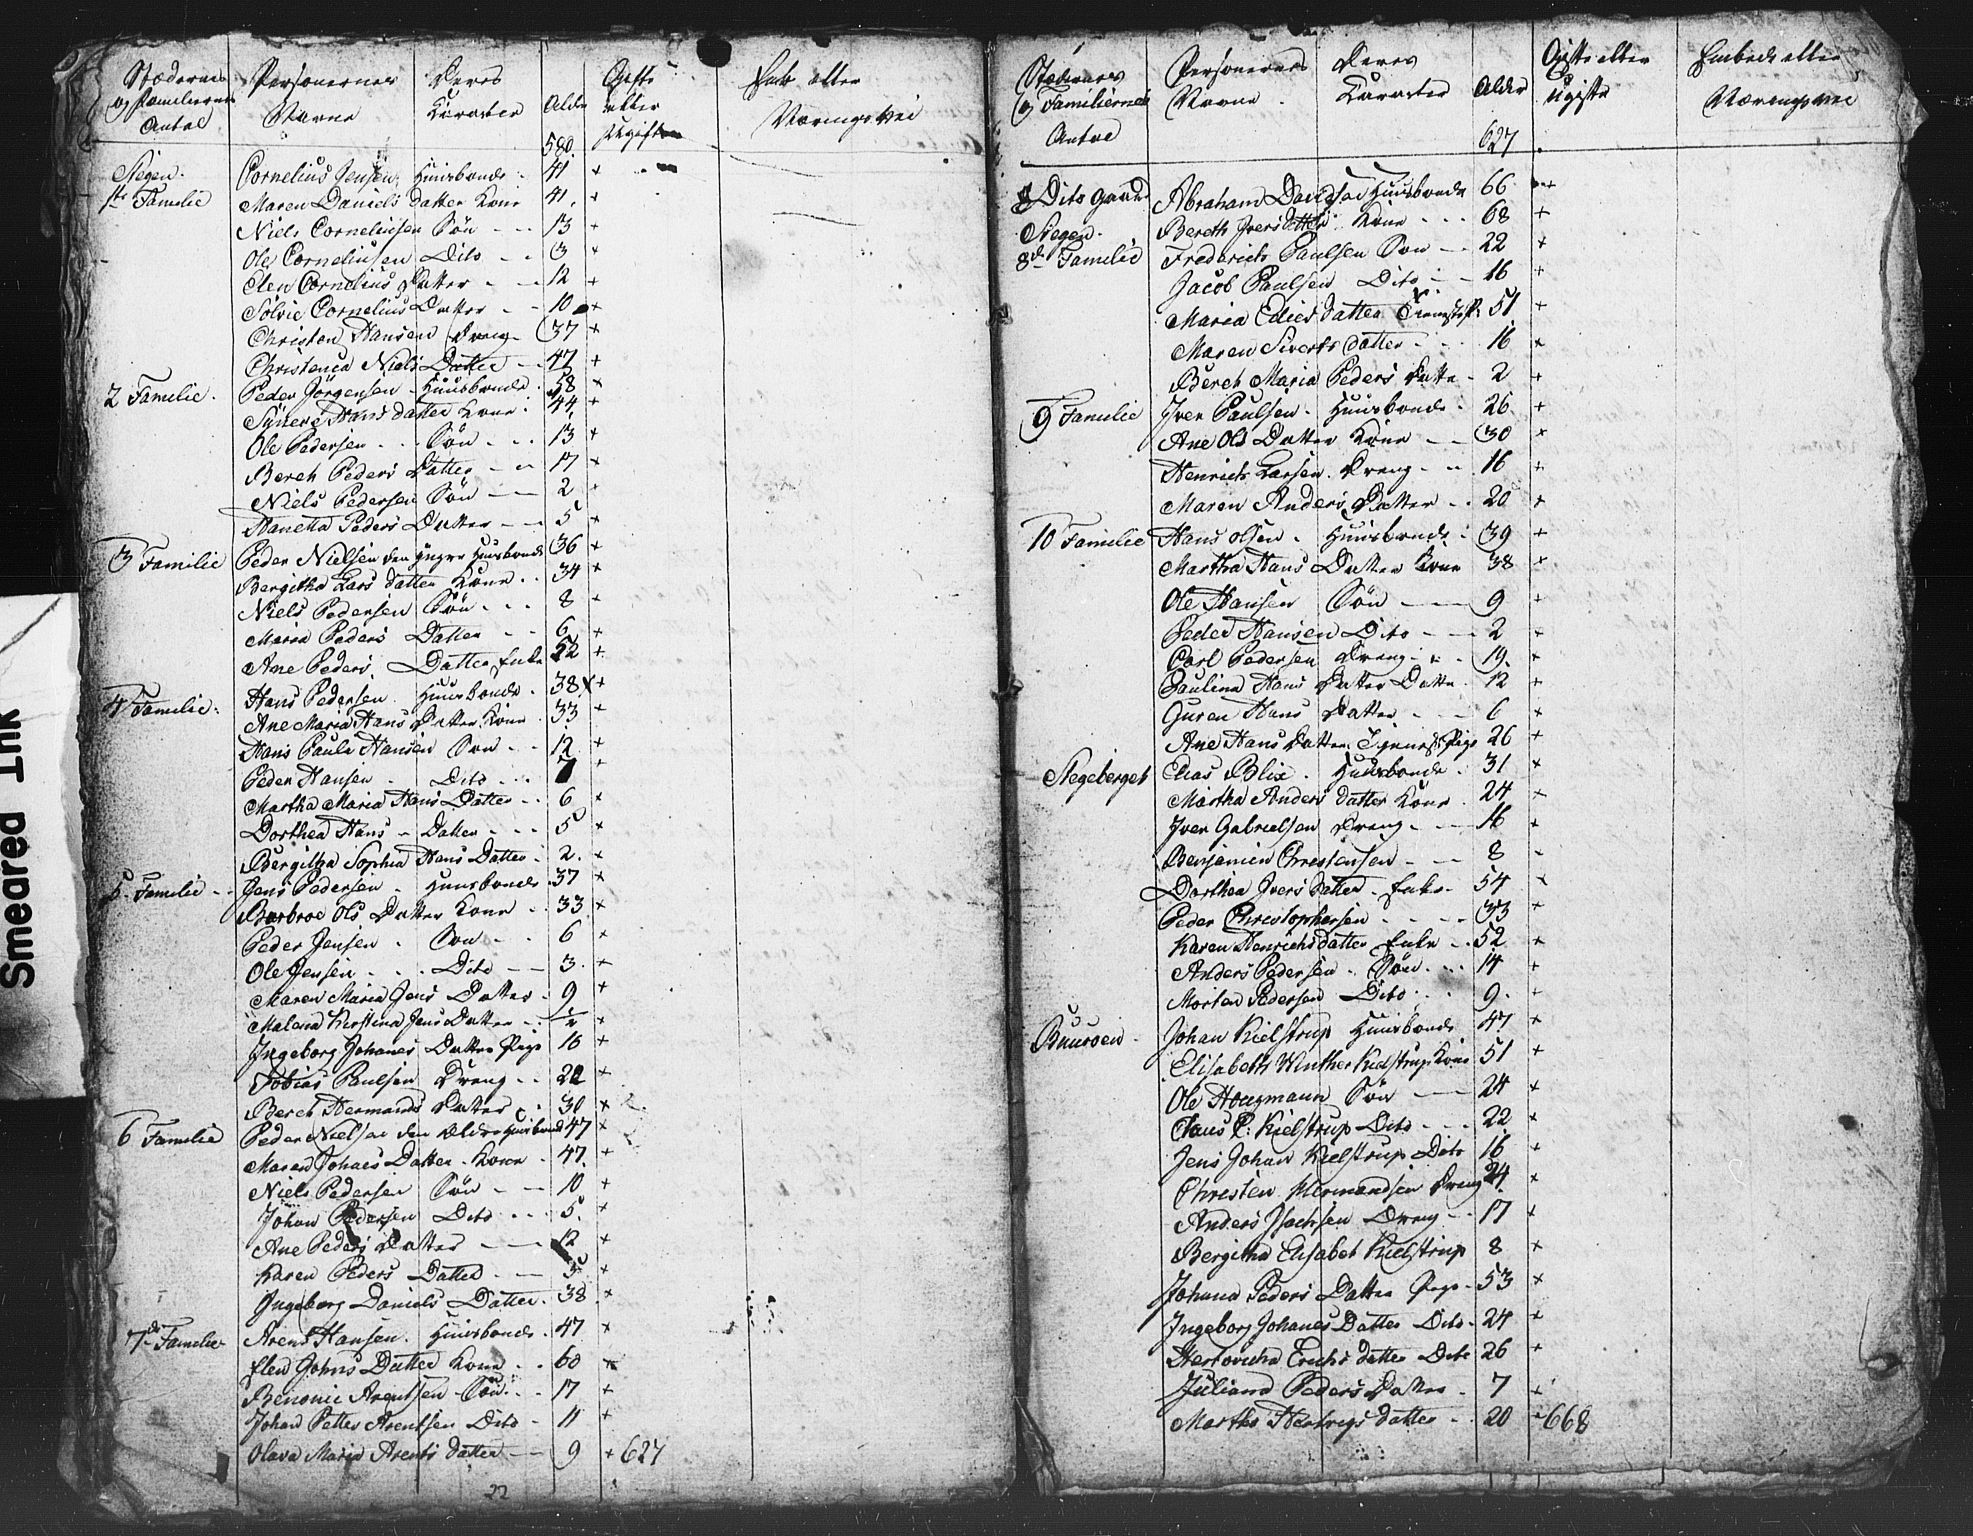 Stædernes og Familiernes Antal | Personernes Navne | Deres Karacter | Alder | Gifte eller Ugifte | Emb eller Nærings vei
580
Stegen. Cornelius Jensen Huusbonde 41 +
1te Familie Maren Daniels datter Kone 41 +
Niels Corneliusen Sön 13 +
Ole Corneliusen Dito 3 +
Elen Cornelius Datter 12 +
Sölvie Cornelius Datter 10 +
Christen Hansen Dreng 37 +
Christenca Niels Datter 47 +
2 Familie. Peder Jörgensen Huusbonde 58 +
Hans datter Kone 44 +
Ole Pedersen Sön 13 +
Bereh Peders Datter 17 +
Niels Pedersen Sön 2 +
Hanetta Peders Datter 5 +
3 Familie Peder Nielsen den yngre Huusbonde 36 +
Bergitha Lars datter Kone 34 +
Niels Pedersen Sön 8 +
Maria Peders Datter 6 +
Ane Peders Datter Enke +
4 Familie. Hans Pedersen Huusbonde 38 +
Ane Maria Hans Datter Kone 33 +
Hans Paule Hansen Son 12 +
Peder Hansen Dito +
Martha Maria Hans Datter 6 +
Dorthea Hans Datter 5 +
Bergitha Sophia Hans Datter 2 +
5 Familie Jens Pedersen Huusbonde 37 +
Barbroe Ols Datter Kone 33 +
Peder Jensen Son 6 +
Ole Jensen Dito 3 +
Maren Maria Jens Datter 9 +
Malena Kirstina Jens Datter 1/2 +
Ingeborg Johanes Datter Pige 16 +
Tobias Paulsen Dreng +
Bereh Hermands Datter 30 +
6 Familie Peder Nielsen den Ældre Huusbond 47 +
Maren Johnes Datter Kone 47 +
Niels Pedersen Sön 10 +
Johan Pedersen Dito 5 +
Ane Peders Datter 12 +
Karen Peders Datter 5 +
Ingeborg Daniels Datter 38 +
7de Familie Arent Hansen Huusbonde 47 +
Elen Johns Datter Kone 60 +
Benonie Arentsen Sön 17 +
Johan Petter Arentsen Dito 11 +
Olava Maria Arents datter 9 + 627
22
Stædernes og Familiernes Antal | Personernes Navne | Deres Karacter | Alder | Gifte eller Ugifte | Embede eller Nærings vei
627
Dito Abraham Davidsen Huusbonde 66 +
Stegen. Bereth Ivers datter Kone 68 +
8de Familie Frederich Paulsen Son 22 +
Jacob Paulsen Dito 16 +
Maria datter 51 +
Maren Siverts datter 16 +
Bereh Maria Peders Datte 2 +
9 Familie Iver Paulsen Huusbonde 26 +
Ane Ols Datter Kone 30 +
Henrich Larsen Dreng 16 +
Maren Anders Datter 20 +
10 Familie Hans Olsen Huusbonde 39 +
Martha Hans Datter Kone 38 +
Ole Hansen Sön 9 +
Peder Hansen Dito 2 +
Carl Pedersen Dreng 19 +
Paulina Hans Datter Datte 12 +
Guren Hans Datter 6 +
Ane Hans Datter Tienest Pige 26 +
Stegeberget Elias Blix Huusbonde 31 +
Martha Anders datter Kone 24 +
Iver Gabrielsen Dreng 16 +
Benjamin Christensen 8
Dorthea Ivers datter Enke 54 +
Peder Christophersen 33 +
Karen Henrichs datter Enke 52 +
Anders Pedersen Sön 14 +
Morten Pedersen Dito 9 +
Buuroen Johan Kielstrup Huusbonde 47 +
Elisabeth Winther Kielstrup Kone 51 +
Ole Hougmann Sön 24 +
Claus P: Kielstrup Dito 22 +
Jens Johan Kielstrup Dito 16 +
Christen Hermandsen Dreng 24 +
Anders Isachsen Dreng 17 +
Bergitha Elisabet Kielstrup 8 +
Johana Peders Datter Pige 53 +
Ingeborg Johanes Datter Dito 24 +
Erichs datter Dito 26 +
Juliana Peders Datter 7 +
Martha Hertvigs datter 20 + 668
Smeared Ink